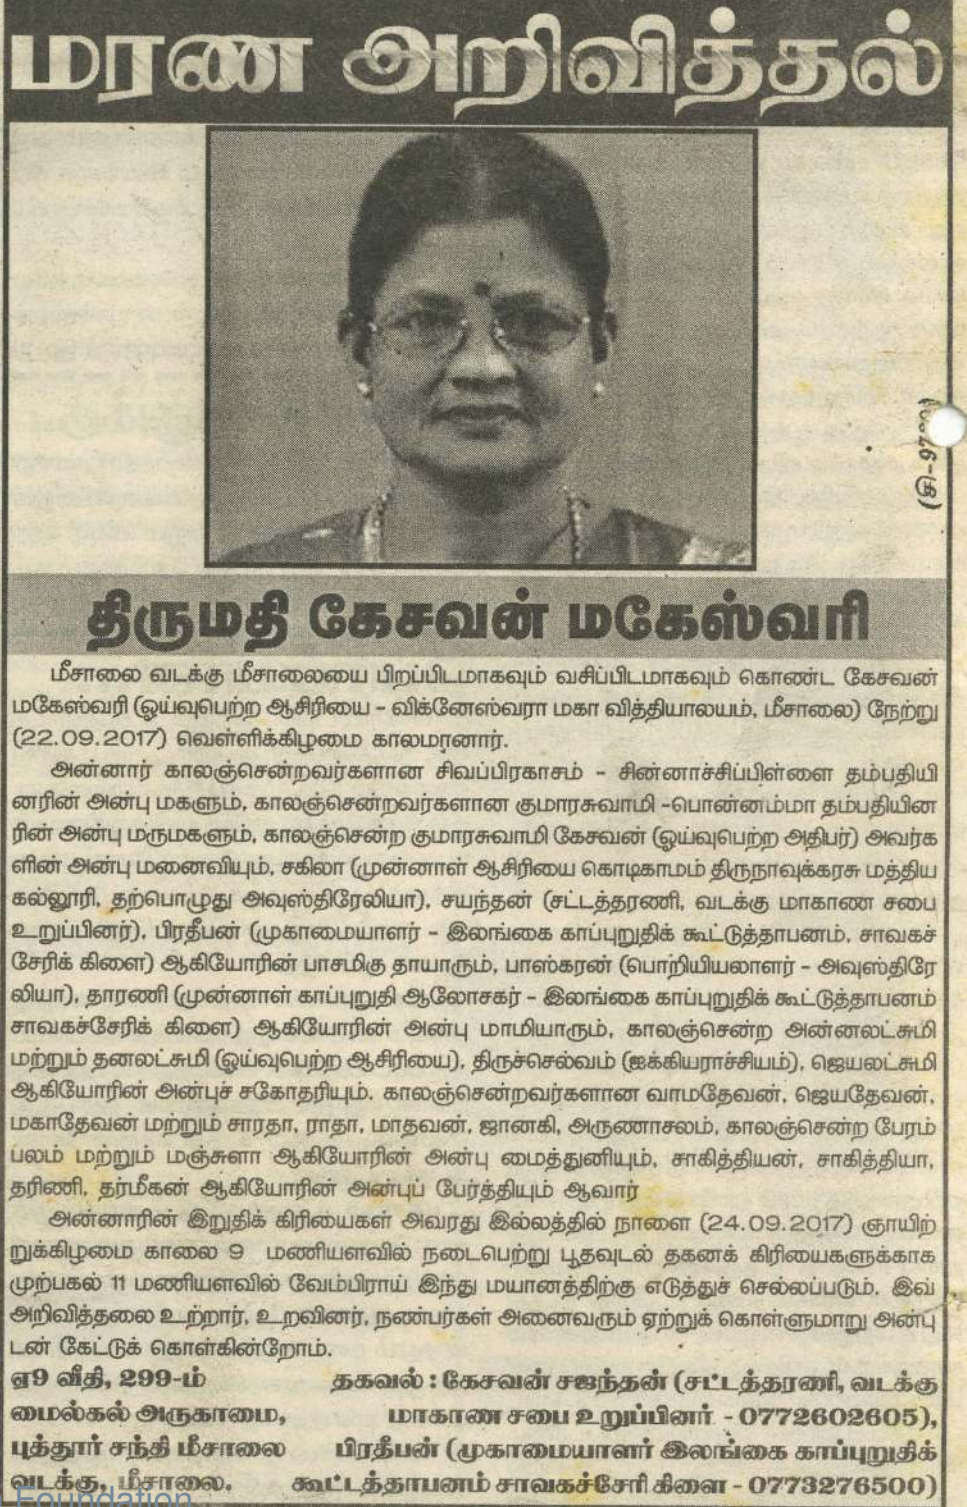 மரண அறிவித்தல்
திருமதி கேசவன் மகேஸ்வரி
மீசாலை வடக்கு மீசாலையை பிறப்பிடமாகவும் வசிப்பிடமாகவும் கொண்ட கேசவன்
மகேஸ்வரி (ஓய்வுபெற்ற ஆசிரியை – விக்னேஸ்வரா மகா வித்தியாலயம், மீசாலை) நேற்று
(22.09.2017) வெள்ளிக்கிழமை காலமானார்.
அன்னார் காலஞ்சென்றவர்களான சிவப்பிரகாசம் – சின்னாச்சிப்பிள்ளை தம்பதியி
னரின் அன்பு மகளும், காலஞ்சென்றவர்களான குமாரசுவாமி –பொன்னம்மா தம்பதியின
ரின் அன்பு மருமகளும், காலஞ்சென்ற குமாரசுவாமி கேசவன் (ஓய்வுபெற்ற அதிபர்) அவர்க
ளின் அன்பு மனைவியும், சகிலா (முன்னாள் ஆசிரியை கொடிகாமம் திருநாவுக்கரசு மத்திய
கல்லூரி, தற்பொழுது அவுஸ்திரேலியா), சயந்தன் (சட்டத்தரணி, வடக்கு மாகாண சபை
உறுப்பினர்), பிரதீபன் (முகாமையாளர் – இலங்கை காப்புறுதிக் கூட்டுத்தாபனம், சாவகச்
சேரிக் கிளை) ஆகியோரின் பாசமிகு தாயாரும், பாஸ்கரன் (பொறியியலாளர் – அவுஸ்திரே
லியா), தாரணி (முன்னாள் காப்புறுதி ஆலோசகர் – இலங்கை காப்புறுதிக் கூட்டுத்தாபனம்
சாவகச்சேரிக் கிளை) ஆகியோரின் அன்பு மாமியாரும், காலஞ்சென்ற அன்னலட்சுமி
மற்றும் தனலட்சுமி (ஓய்வுபெற்ற ஆசிரியை), திருச்செல்வம் (ஐக்கியராச்சியம்), ஜெயலட்சுமி
ஆகியோரின் அன்புச் சகோதரியும். காலஞ்சென்றவர்களான வாமதேவன், ஜெயதேவன்,
மகாதேவன் மற்றும் சாரதா, ராதா, மாதவன், ஜானகி, அருணாசலம், காலஞ்சென்ற பேரம்
பலம் மற்றும் மஞ்சுளா ஆகியோரின் அன்பு மைத்துனியும், சாகித்தியன், சாகித்தியா,
தரிணி, தர்மீகன் ஆகியோரின் அன்புப் பேர்த்தியும் ஆவார்
அன்னாரின் இறுதிக் கிரியைகள் அவரது இல்லத்தில் நாளை (24.09.2017) ஞாயிற்
றுக்கிழமை காலை 9 மணியளவில் நடைபெற்று பூதவுடல் தகனக் கிரியைகளுக்காக
முற்பகல் 11 மணியளவில் வேம்பிராய் இந்து மயானத்திற்கு எடுத்துச் செல்லப்படும். இவ்
அறிவித்தலை உற்றார், உறவினர், நண்பர்கள் அனைவரும் ஏற்றுக் கொள்ளுமாறு அன்பு
டன் கேட்டுக் கொள்கின்றோம்.
ஏ9 வீதி, 299-ம்
மைல்கல் அருகாமை,
புத்தூர் சந்தி மீசாலை
வடக்கு, மீசாலை.
தகவல் : கேசவன் சஜந்தன் (சட்டத்தரணி, வடக்கு
மாகாண சபை உறுப்பினர் - 0772602605),
பிரதீபன் (முகாமையாளர் இலங்கை காப்புறுதிக்
கூட்டத்தாபனம் சாவகச்சேரி கிளை - 0773276500)
Foundation